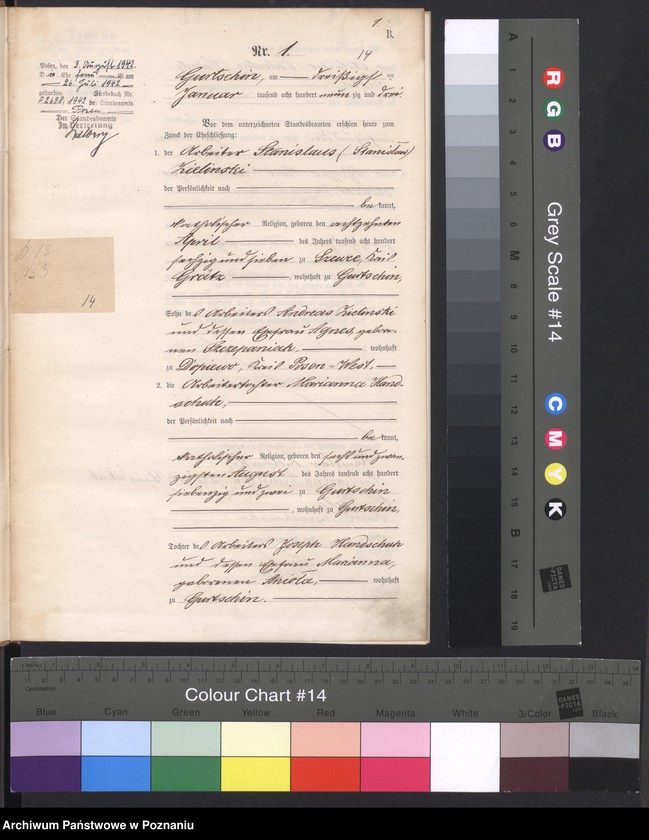 1
B.
Nr. 1.
14
Posen, den 3. August 1942.
gestorben. Sterbebuch Nr.
P2688/1942 des Standesamts
Posen
Der Standesbeamte
In Vertretung
Gurtschin, am dreißigsten
Januar tausend acht hundert neunzig und drei.
Vor dem unterzeichneten Standesbeamten erschienen heute zum
Zweck der Eheschließung:
1. der Arbeiter Stanislaus (Stanisław)
Zielinski
der Persönlichkeit nach
be kannt,
katholischer Religion, geboren den achtzehnten
April des Jahres tausend acht hundert
sechzig und sieben zu
Graetz, wohnhaft zu Gurtschin,
Sohn des Arbeiters Andreas Zielinski
und dessen Ehefrau Agnes, gebore-
nen Szczepaniak, wohnhaft
zu Dopiewo, Kreis Posen-West.
2. die Arbeitertochter Marianna Hand-
schuh,
der Persönlichkeit nach
be kannt,
katholischer Religion, geboren den sechs und zwan-
zigsten August des Jahres tausend acht hundert
siebenzig und zwei zu Gurtschin
, wohnhaft zu Gurtschin,
Tochter des Arbeiters Joseph Handschuh
und dessen Ehefrau Marianna,
geborenen Aniola, wohnhaft
zu Gurtschin.
14
A 1 2 3 4 5 6 M 8 9 10 11 12 13 14 15 B 17 18 19
R
G
B
Grey Scale #14
C
M
Y
K
DANES
PICTA
Colour Chart #14
DANES
PICTA
Blue Cyan Green Yellow Red Magenta White 3/Color Black
Archiwum Państwowe w Poznaniu